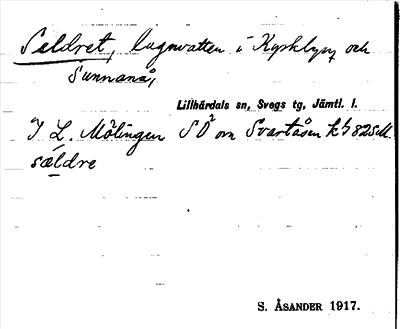 Seldret, lugnvatten i Kyrkbyn och
Sunnanå,
Lillhärdals sn, Svegs tg, Jämtl. l.
I L. Mölingen SO om Svartåsen kbl 82SM.
sældre
S. ÅSANDER 1917.